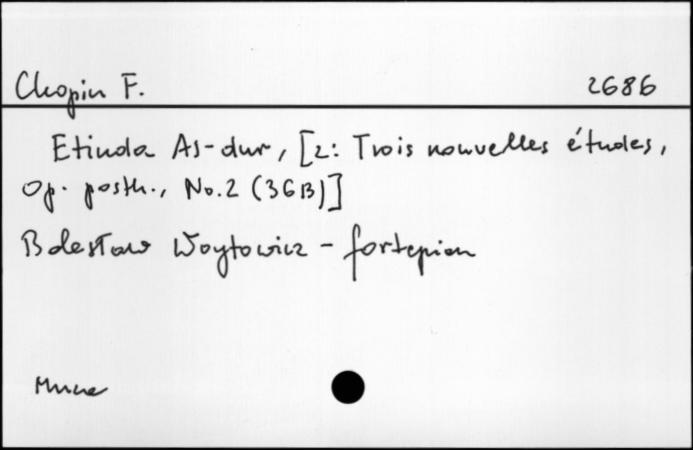 Chopin F. 2686
Etiuda As-dur, [z: Trois nouvelles études,
Op. posth., No.2 (36B)]
Bolesław Woytowicz - fortepian
Muza